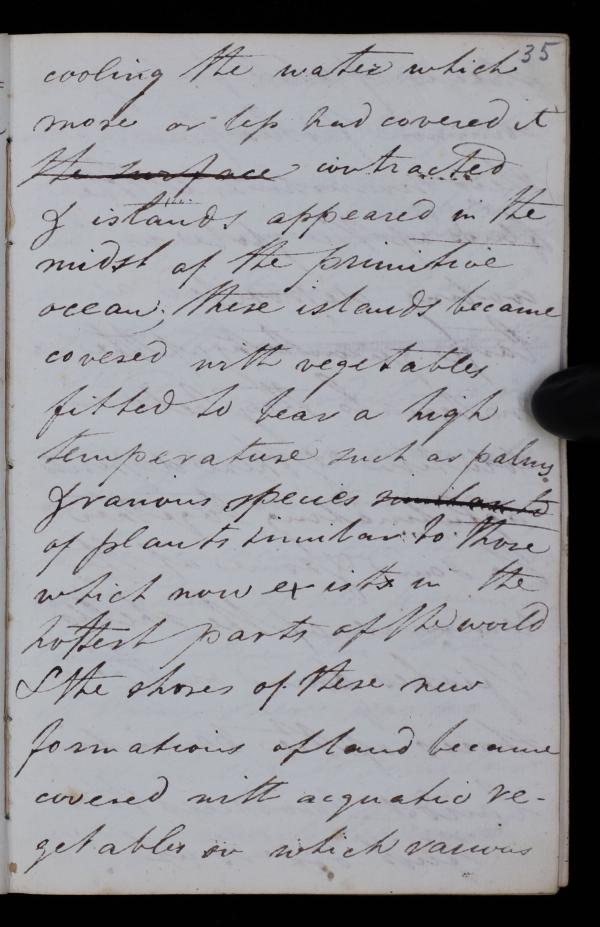 35
cooling the water which
more or less had covered it
the surface contracted
& islands appeared in the
midst of the primitive
ocean; these islands became
covered with vegetables
fitted to bear a high
temperature such as palms
& various species similar to
of plants similar to those
which now exists in the
hottest parts of the world
& the shores of these new
formations of land became
covered with acquatic ve-
getables on which various